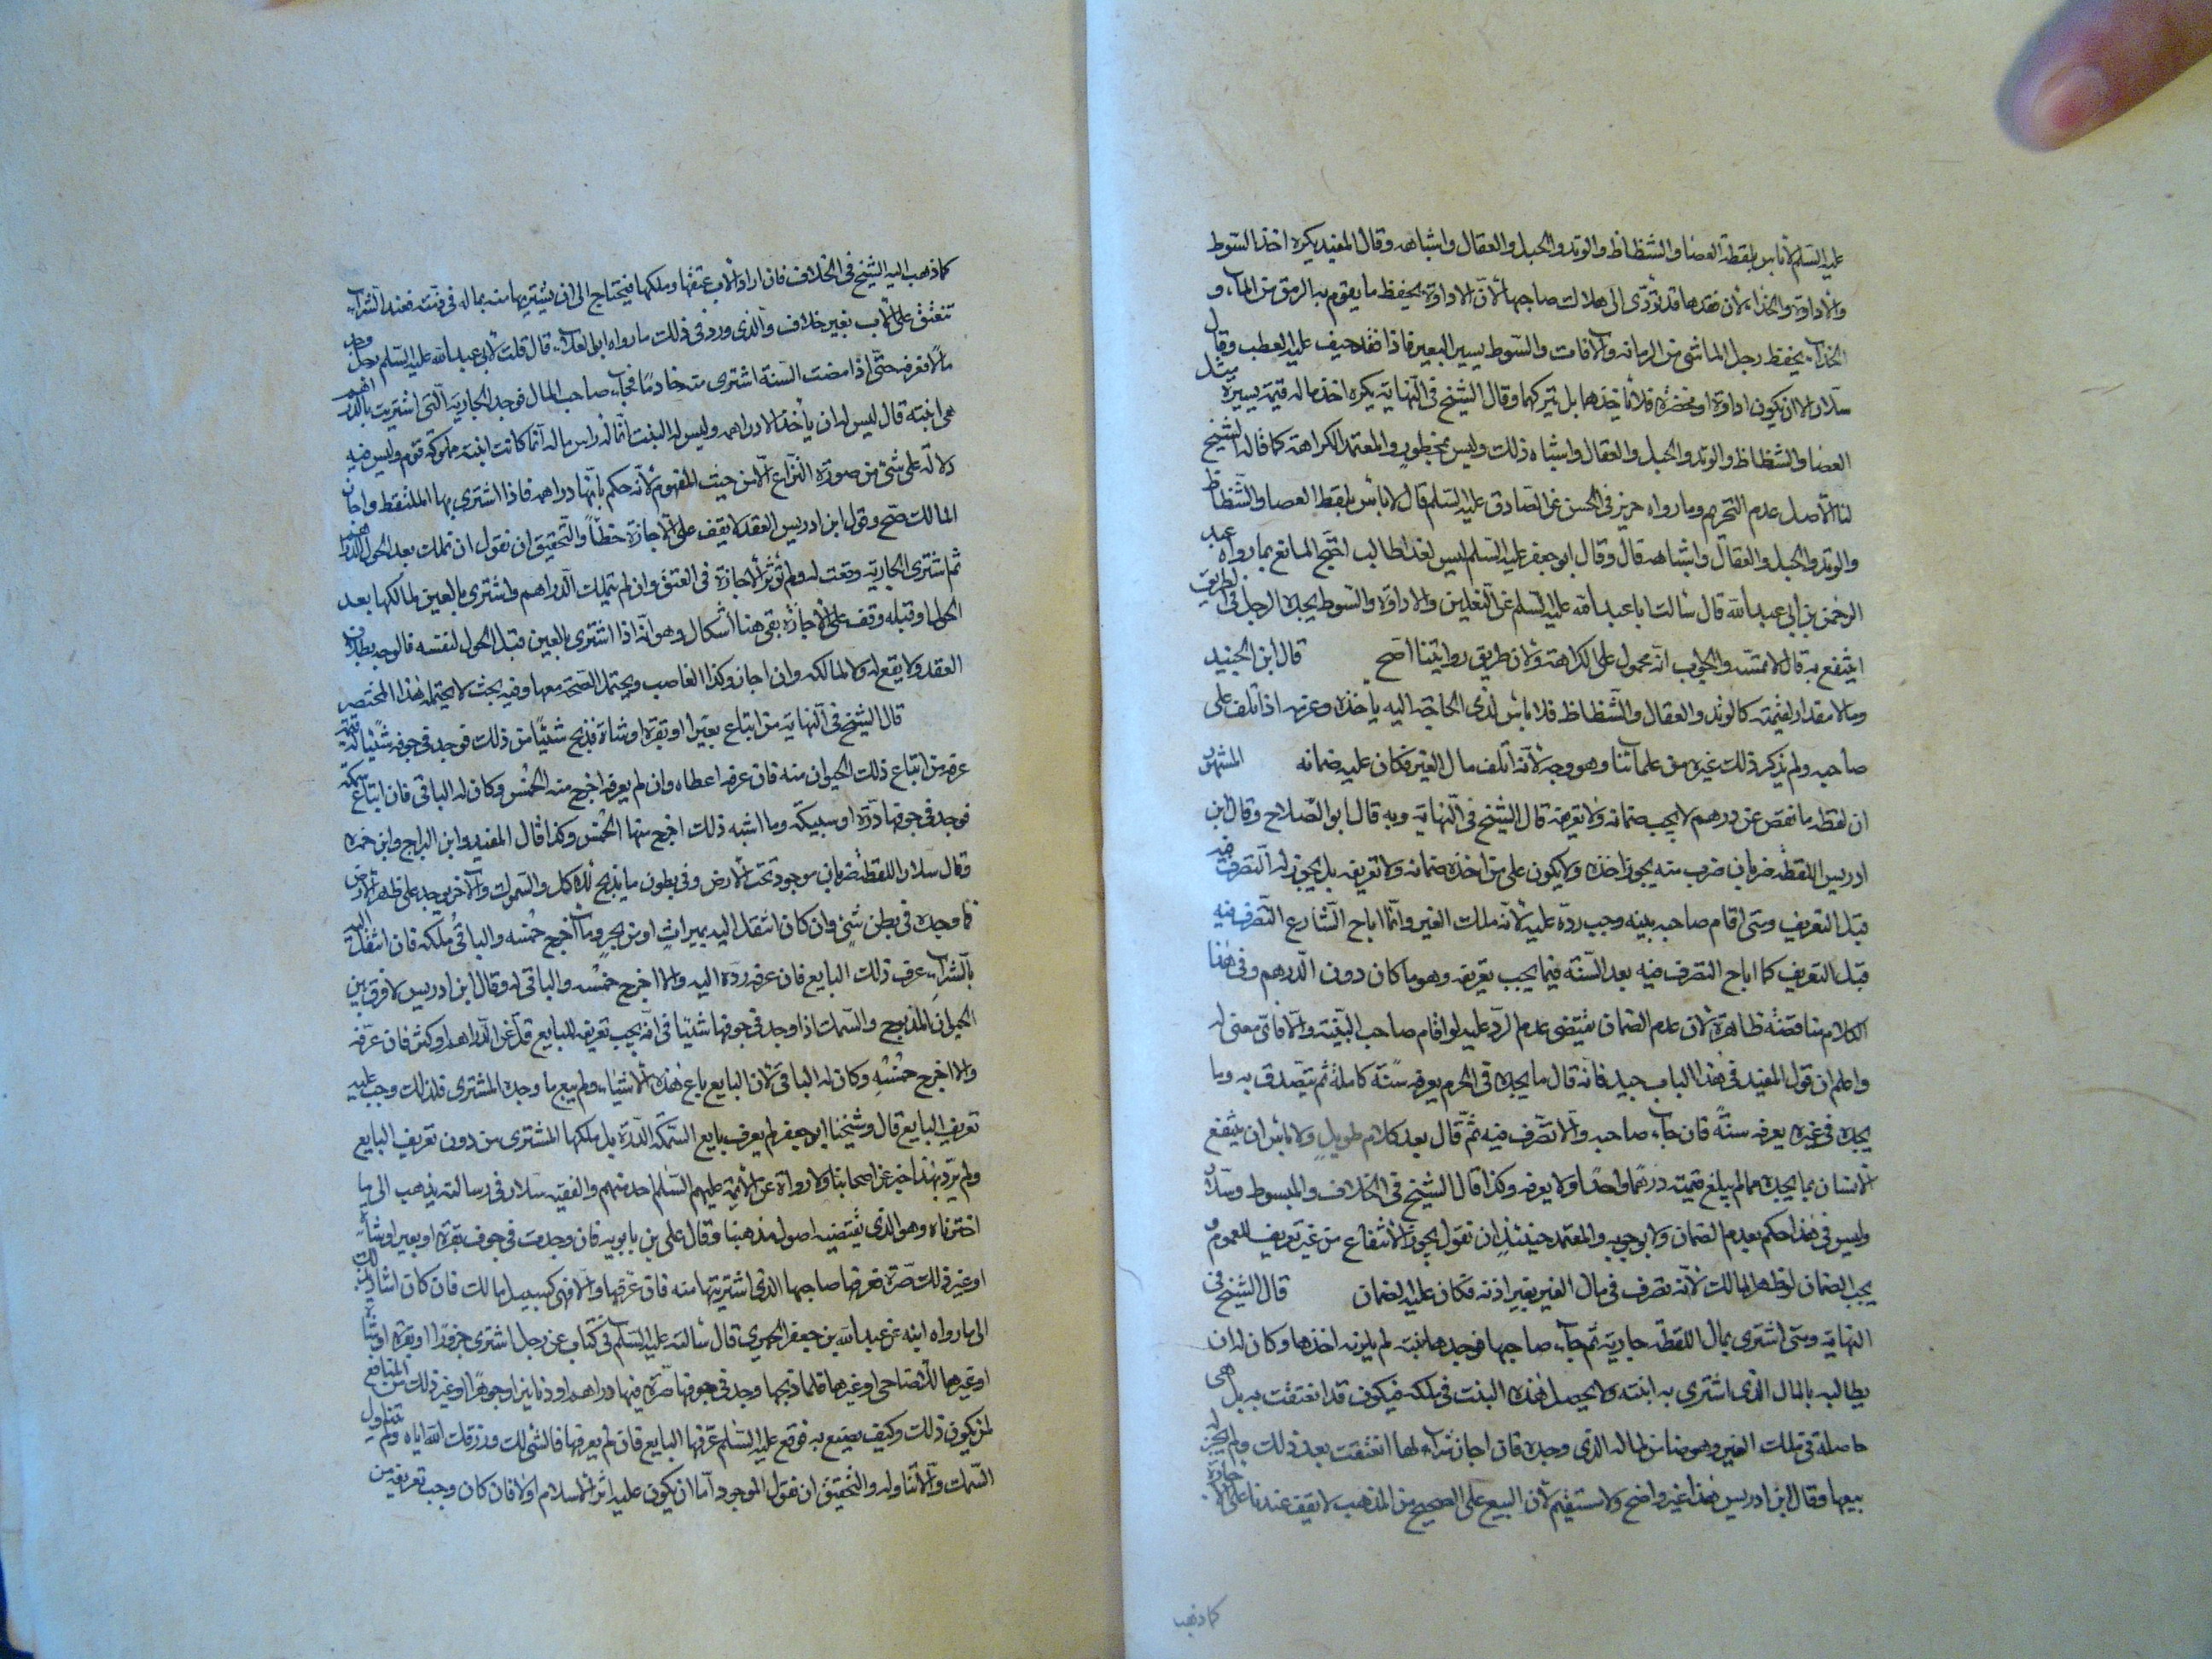 عليه السلم لا باس بلقطة العصا والشظاظ والوتد والحبل والعقال واشباهه وقال المفيد يكره اخذ السوط
والاداوة والحذاء لان فقدها قد تؤدى الى هلاك صاحبها لان الاداوة يحفظ ما يقوم به الرمق من الماء و
الحذاء يحفظ رجل الماشى من الزمانة والافات والسوط يسير البعير فاذا فقد خيف عليه العطب وقال
سلار الا ان يكون اداوة او مخصرة فلا ياخذهما بل يتركهما وقال الشيخ فى النهاية يكره اخذ ما له قيمة يسيرة مثل
العصا والشظاظ والوتد والحبل والعقال واشباه ذلك وليس بمحظور والمعتمد الكراهة كما قاله الشيخ
لنا الاصل عدم التحريم وما رواه حريز فى الحسن عن الصادق عليه السلم قال لا باس بلقطة العصا والشظاظ
والوتد والحبل والعقال واشباهه قال وقال ابو جعفر عليه السلم ليس لهذا طالب احتج المانع بما رواه عبد
الرحمن بن ابى عبد الله قال سالت ابا عبد الله عليه السلم عن النعلين والاداوة والسوط يجده الرجل فى الطريق
اينتفع به قال لا يمسه والجواب انه محمول على الكراهة ولان طريق روايتنا اصح قال ابن الجنيد
وما لا مقدار لقيمته كالوتد والعقال والشظاظ فلا باس لذى الحاجة اليه ياخذه وغرمه اذا تلف على
صاحبه ولم يذكر ذلك غيره من علمائنا وهو وجه لانه اتلف مال الغير فكان عليه ضمانه المشهور
ان لقطه ما نقص عن درهم لا يجب ضمانه ولا تعريفه قال الشيخ فى النهاية وبه قال ابو الصلاح وقال ابن
ادريس اللقطة ضربان ضرب منه يجوز اخذه ولا يكون على من اخذه ضمانه ولا تعريفه بل يجوز له التصرف فيه
قبل التعريف ومتى اقام صاحبه بينه وجب رده عليه لانه ملك الغير وانما اباح الشارع التصرف فيه
قبل التعريف كما اباح التصرف فيه بعد السنة فيما يجب تعريفه وهو ما كان دون الدرهم وفى هذا
الكلام مناقضة ظاهرة لان عدم الضمان يقتضى عدم الرد عليه لو اقام صاحب البينة والا فاى معنى له
واعلم ان قول المفيد فى هذا الباب جيد فانه قال ما يجده فى الحرم يعرفه سنة كاملة ثم يتصدق به وما
يجده فى غيره يعرفه سنة فان جاء صاحبه والا تصرف فيه ثم قال بعد كلام طويل ولا باس ان ينتفع
الانسان بما يجده مما لم يبلغ قيمته درهما واحدا ولا يعرفه وكذا قال الشيخ فى الخلاف والمبسوط وسلار
وليس فى هذا حكم بعدم الضمان ولا بوجوبه والمعتمد حينئذ ان نقول يجوز الانتفاع من غير تعريف للعموم و
يجب الضمان لو ظهر المالك لانه تصرف فى مال الغير بغير اذنه فكان عليه الضمان قال الشيخ فى
النهاية ومتى اشترى بمال اللقطة جارية ثم جاء صاحبها فوجدها بنته لم يلزمه اخذها وكان له ان
يطالبه بالمال الذى اشترى به ابنته ولا يحصل هذه البنت فى ملكه فيكون قد انعتقت به بل هى
حاصلة فى ملك الغير وهو ضامن لماله الذى وجده فان اجاز شراه لها انعتقت بعد ذلك ولم يجز له
بيعها وقال ابن ادريس هذا غير واضح ولا مستقيم لان البيع على الصحيح من المذهب لا يقف عندنا على الاجازة
كما ذهب
كما ذهب اليه الشيخ فى الخلاف فان اراد الاب عتقها وملكها فيحتاج الى ان يشتريها منه بماله فى ذمته فعند الشراء
تنعتق على الاب بغير خلاف والذى ورد فى ذلك ما رواه ابو العلاء قال قلت لابى عبد الله عليه السلم رجل وجد
مالا فعرفه حتى اذا مضت السنة اشترى منه خادما فجاء صاحب المال فوجد الجارية التى اشتريت بالدراهم
هى ابنته قال ليس له ان ياخذ الا دراهمه وليس له البنت انما له راس ماله انما كانت ابنته مملوكة قوم وليس فيه
دلالة على شئ من صورة النزاع الا من حيث المفهوم لانه حكم بانها دراهمه فاذا اشترى بها الملتقط واجاز
المالك صح وقول ابن ادريس العقد لا يقف على الاجازة خطأ والتحقيق ان نقول ان تملك بعد الحول الدراهم
ثم اشترى الجارية وقعت له ولم تؤثر الاجازة فى العتق وان لم يتملك الدراهم واشترى بالعين لمالكها بعد
الحول او قبله وقف على الاجازة بقى هنا اشكال وهو انه اذا اشترى بالعين قبل الحول لنفسه فالوجه بطلان
العقد ولا يقع له ولا لمالكه وان اجاز وكذا الغاصب ويحتمل الصحة معها وفيه بحث لا يحتمله هذا المختصر
قال الشيخ فى النهاية من ابتاع بعيرا او بقرة او شاة فذبح شيئا من ذلك فوجد فى جوفه شيئا له قيمة
عرفه من ابتاع ذلك الحيوان منه فان عرفه اعطاه وان لم يعرفه اخرج منه الخمس وكان له الباقى فان ابتاع سمكة
فوجد فى جوفها درة او سبيكة وما اشبه ذلك اخرج منها الخمس وكذا قال المفيد وابن البراج وابن حمزه
وقال سلار اللقطة ضربان موجود تحت الارض وفى بطون ما يذبح للاكل والسموك والاخر يوجد على ظهر الارض
فما وجده فى بطن شئ وان كان انتقل اليه بميراث او من بحر وماء اخرج خمسه والباقى ملكه فان انتقل اليه
بالشراء عرف ذلك البايع فان عرفه رده اليه والا اخرج خمسه والباقى له وقال ابن ادريس لا فرق بين
الحيوان المذبوح والسمك اذا وجد فى جوفها شيئا فى انه يجب تعريفه للبايع قل عن الدراهم او كثر فان عرفه
والا اخرج خمسه وكان له الباقى لان البايع باع هذه الاشياء ولم يبع ما وجده المشترى فلذلك وجب عليه
تعريف البايع قال وشيخنا ابو جعفر لم يعرف بايع السمكة الدرة بل ملكها المشترى من دون تعريف البايع
ولم يرد بهذا خبر عن اصحابنا ولا رواة عن الائمة عليهم السلم احد منهم والفقيه سلار فى رسالته يذهب الى ما
اخترناه وهو الذى يقتضيه اصول مذهبنا وقال على بن بابويه فان وجدت فى جوف بقرة او بعير او شاة
او غير ذلك صرة فعرفها صاحبها الذى اشتريتها منه فان عرفها والا فهى كسبيل مالك فان كان اشار بذلك
الى ما رواه ابنه عن عبد الله بن جعفر الحميرى قال سألته عليه السلم فى كتاب عن رجل اشترى جزورا او بقرة او شاة
او غيرها للاضاحى او غيرها فلما ذبحها وجد فى جوفها صرة فيها دراهم او دنانير او جوهرا او غير ذلك من المنافع
لمن يكون ذلك وكيف يصنع به فوقع عليه السلم عرفها البايع فان لم يعرفها فالشئ لك ورزقك الله اياه ولم يتناول
السمك والا تناوله والتحقيق ان نقول الموجود اما ان يكون عليه اثر الاسلام اولا فان كان وجب تعريفه من